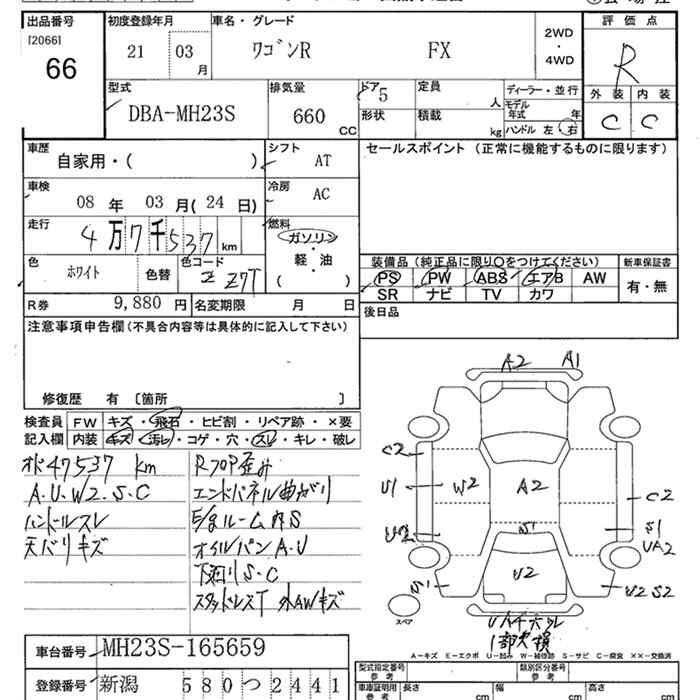 出品番号 初度登録年月 車名・グレード 評価点
[2066] 66
21 03 月 ワゴンR FX 2WD・4WD R
型式 排気量 ドア 定員 人 ディーラー・並行
DBA-MH23S 660 CC 5 モデル年式 年
形状 積載 kg ハンドル 左・右
外装 内装
C C
車歴 自家用・( ) シフト AT
セールスポイント (正常に機能するものに限ります)
車検 08年 03月(24日) 冷房 AC
走行 4万7千537 km 燃料 ガソリン・軽・油 ( )
色 ホワイト 色替 色コード Z Z7T
装備品 (純正品に限り○をつけてください) 新車保証書
PS PW ABS エアB AW 有・無
SR ナビ TV カワ
R券 9,880 円 名変期限 月 日
後日品
注意事項申告欄 (不具合内容等は具体的に記入して下さい)
修復歴 有 [箇所 ]
検査員 FW キズ・飛石・ヒビ割・リペア跡・×要
記入欄 内装 キズ・汚レ・コゲ・穴・スレ・キレ・破レ
オド47537 km
A.U.W2.S.C
ハンドルスレ
天バリキズ
Rフロア歪み
エンドパネル曲がり
E/gルーム内S
オイルパンA.U
下廻りS.C
スタッドレスT 外AWキズ
A2 A1
C2
U1 W2 A2 C2
S1 S1
UA2
S1 U2 U2 S2
スペア
1部欠損
A-キズ E-エクボ U-凹み W-補修跡 S-サビ C-腐食 ××-交換済
車台番号 MH23S-165659
登録番号 新潟 580 つ 2441
型式指定番号 参考 類別区分番号 参考
車庫証明用 参考 長さ cm 幅 cm 高さ cm